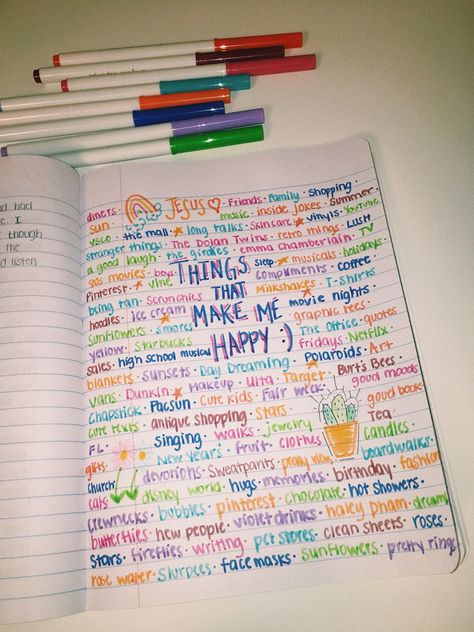 had had
e. I
though
the
d listen
JESUS ♡ · Friends · Family · Shopping ·
diners · music · inside jokes · Summer ·
Sun · the mall · long talks · skincare · vinyls · YouTube
VSCO · stranger things · The Dolan Twins · retro things · LUSH
a good laugh · the girlies · emma chamberlain · TV
90s movies · boy · Sleep · musicals · holidays
Pinterest · vine · THINGS · compliments · coffee
being tan · Scrunchies · THAT · Milkshakes · T-shirts
hoodies · ice cream · MAKE ME · movie nights ·
sunflowers · smores · graphic tees ·
yellow · Starbucks · HAPPY :) · The Office · quotes
sales · high school musical · Fridays · Netflix ·
blankets · sunsets · Day Dreaming · Polaroids · Art
vans · Dunkin · Makeup · Ulta · Target · Burt's Bees ·
chapstick · Pacsun · Cute kids · Fair week · good moods
cute texts · antique shopping · Stars · good book ·
FL · singing · walks · jewelry · Tea
gifts · New Years · Fruit · clothes · candles ·
church · devotions · Sweatpants · pretty view · boardwalks ·
cats · disney world · hugs · memories · birthday · fashion
crewnecks · bubbles · pinterest · chocolate · hot showers ·
butterflies · new people · violet drinks · haley pham · dreamy
Stars · fireflies · writing · pet stores · clean sheets · roses ·
rose water · Slurpees · facemasks · sunflowers · pretty rings